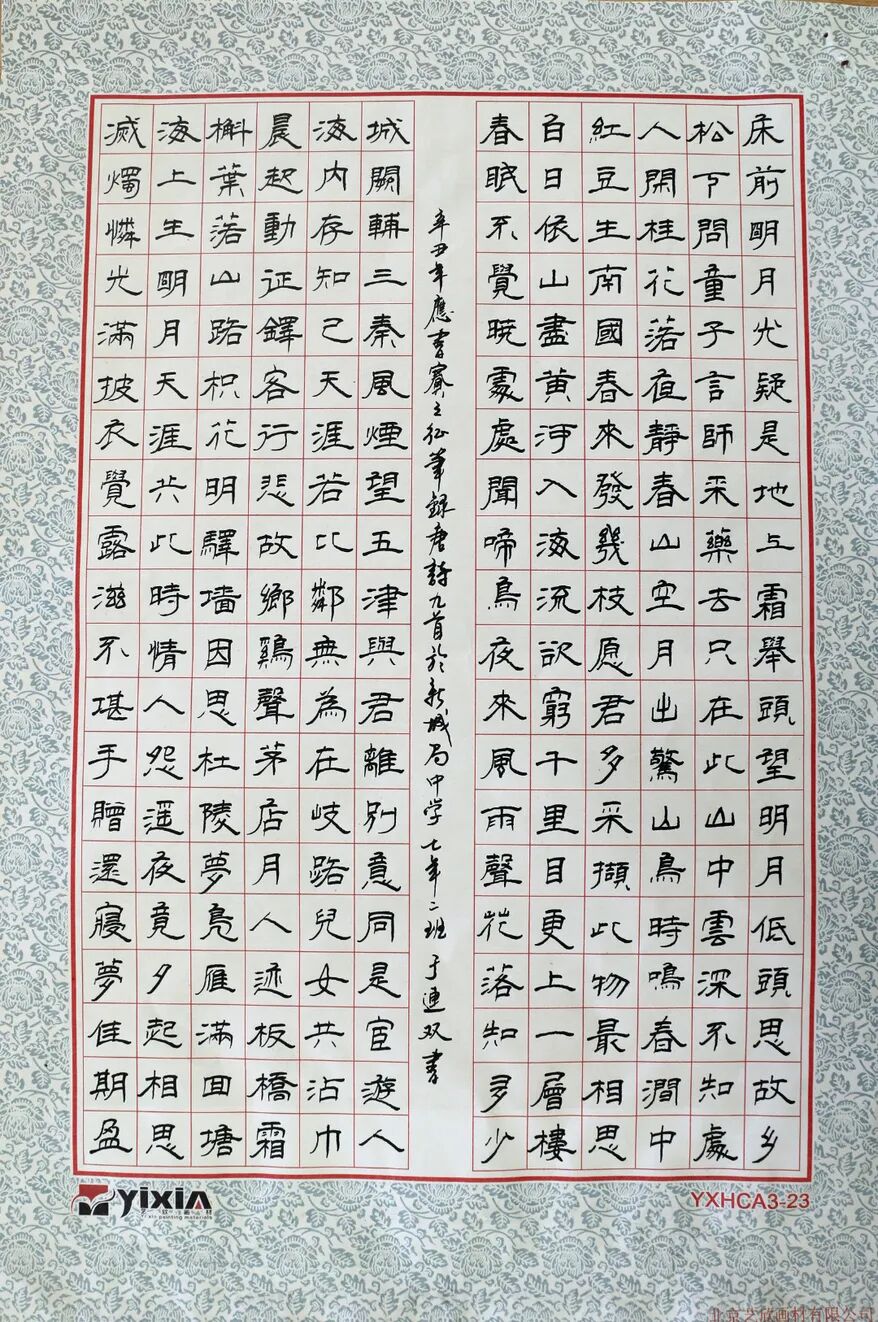 床前明月光疑是地上霜舉頭望明月低頭思故乡
松下問童子言師采藥去只在此山中雲深不知處
人閑桂花落夜靜春山空月出驚山鳥時鳴春澗中
紅豆生南國春來發幾枝愿君多采擷此物最相思
白日依山盡黄河入海流欲窮千里目更上一層樓
春眠不覺曉處處聞啼鳥夜來風雨聲花落知多少
辛丑年應書賽之征筆錄唐詩九首於新城局中学七年二班于連双書
城闕輔三秦風煙望五津與君離别意同是宦遊人
海内存知己天涯若比鄰無為在岐路兒女共沾巾
晨起動征鐸客行悲故鄉鷄聲茅店月人迹板橋霜
槲葉落山路枳花明驛墙因思杜陵夢鳧雁滿回塘
海上生明月天涯共此時情人怨遥夜竟夕起相思
滅燭憐光滿披衣覺露滋不堪手贈還寢夢佳期盈
YiXiN
艺欣画材
Yi xin painting materials
YXHCA3-23
北京艺欣画材有限公司